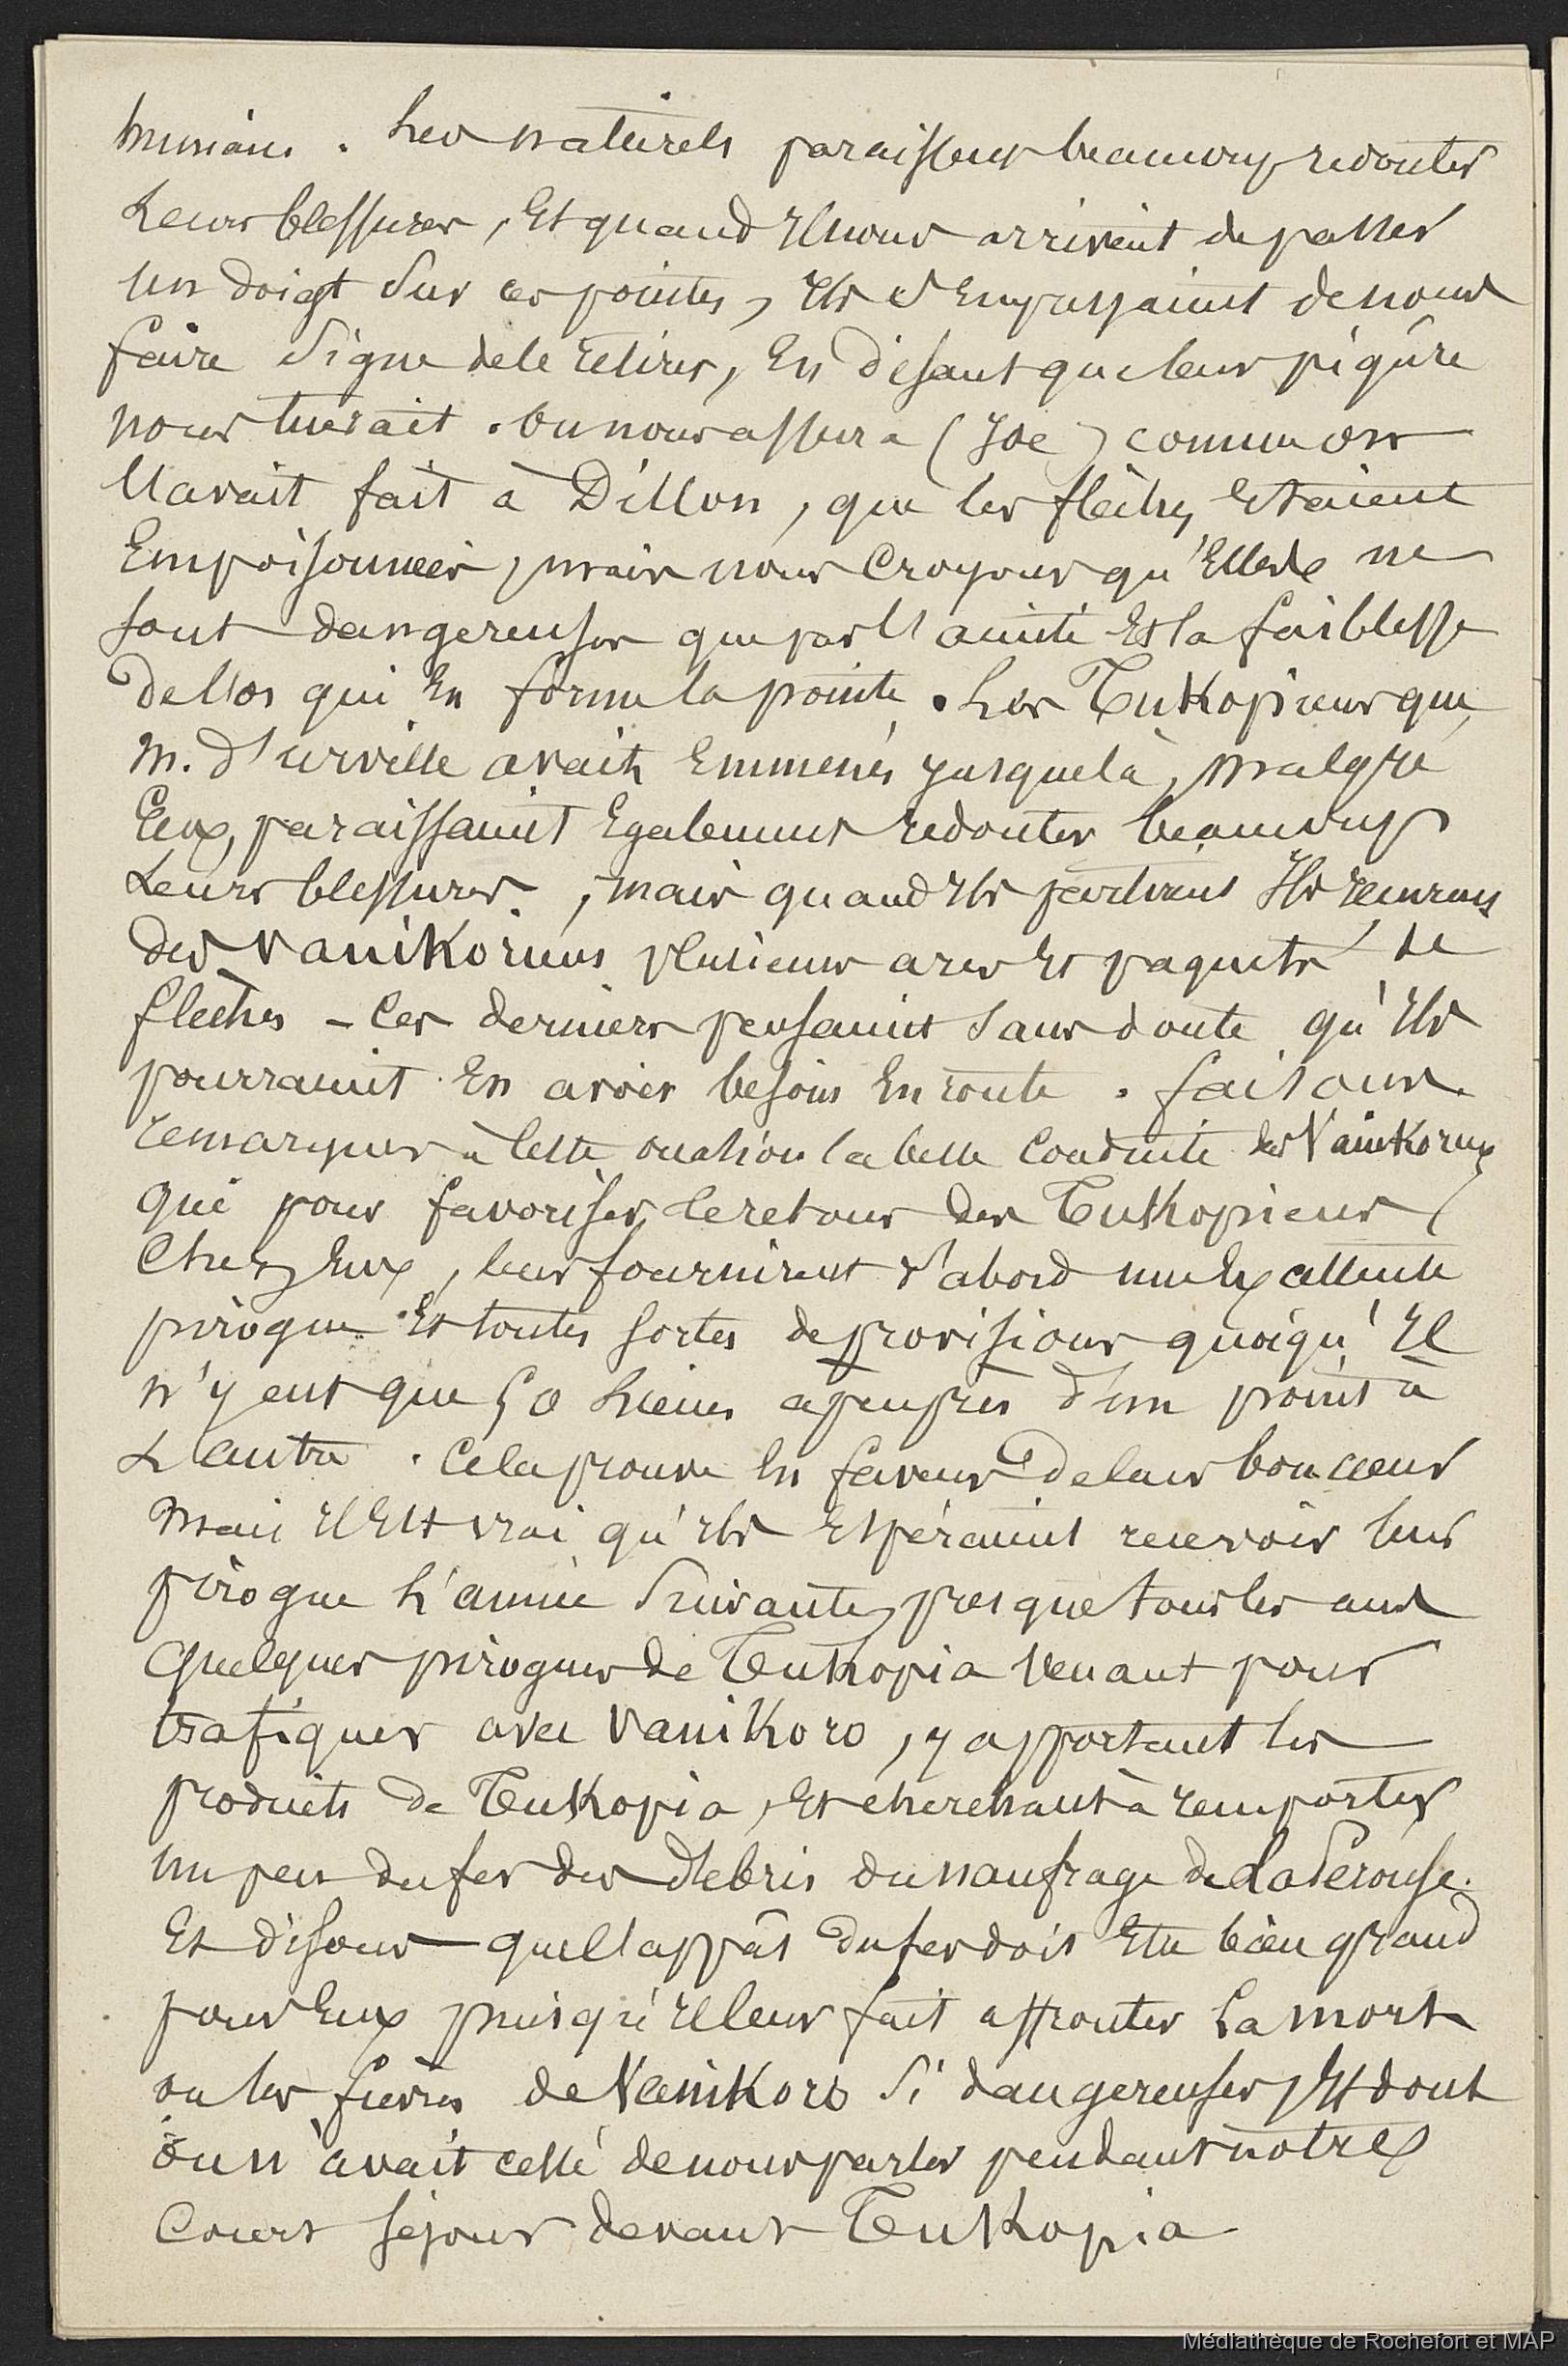 humains. Les naturels paraissent beaucoup redouter
Leurs blessures, Et quand Il nous arrivait de passer
Un doigt Sur ces pointes, Ils S'Empressaient de nous
faire Signe de le retirer, En disant que leur piqûre
nous tuerait. On nous assura (Joe) comme on
l'avait fait à Dillon, que les flèches Etaient
Empoisonnées, mais nous Croyons qu'Elles ne
sont dangereuses que par l'acuité Et la faiblesse
de l'os qui En forme la pointe. Les Tukopiens que
M. d'urville avait Emmenés jusque là, malgré
Eux, paraissaient Egalement redouter beaucoup
Leurs blessures, mais quand Ils partirent Ils reçurent
des Vanikoriens plusieurs arcs Et paquets de
flèches - Ces derniers pensaient Sans doute qu'Ils
pourraient En avoir besoin En route. faisons
remarquer à Cette occasion la belle Conduite des Vanikoriens
qui pour favoriser le retour des Tukopiens
Chez Eux, leur fournirent d'abord une Excellente
pirogue Et toutes sortes de provisions quoiqu'Il
n'y eut que 50 Lieues à peu près d'un point à
L'autre. Cela prouve En faveur de leur bon coeur
mais Il Est vrai qu'Ils Espéraient recevoir leur
pirogue L'année Suivante, presque tous les ans
quelques pirogues de Tukopia Venant pour
trafiquer avec Vanikoro, y apportant les
produits de Tukopia, Et cherchant à remporter
un peu du fer des débris du naufrage de La Pérouse.
Et disons que l'appât du fer doit Etre bien grand
pour Eux puisqu'Il leur fait affronter La mort
ou les fièvres de Vanikoro Si dangereuses, Et dont
on n'avait cessé de nous parler pendant notre
Court séjour devant Tukopia
Médiathèque de Rochefort et MAP